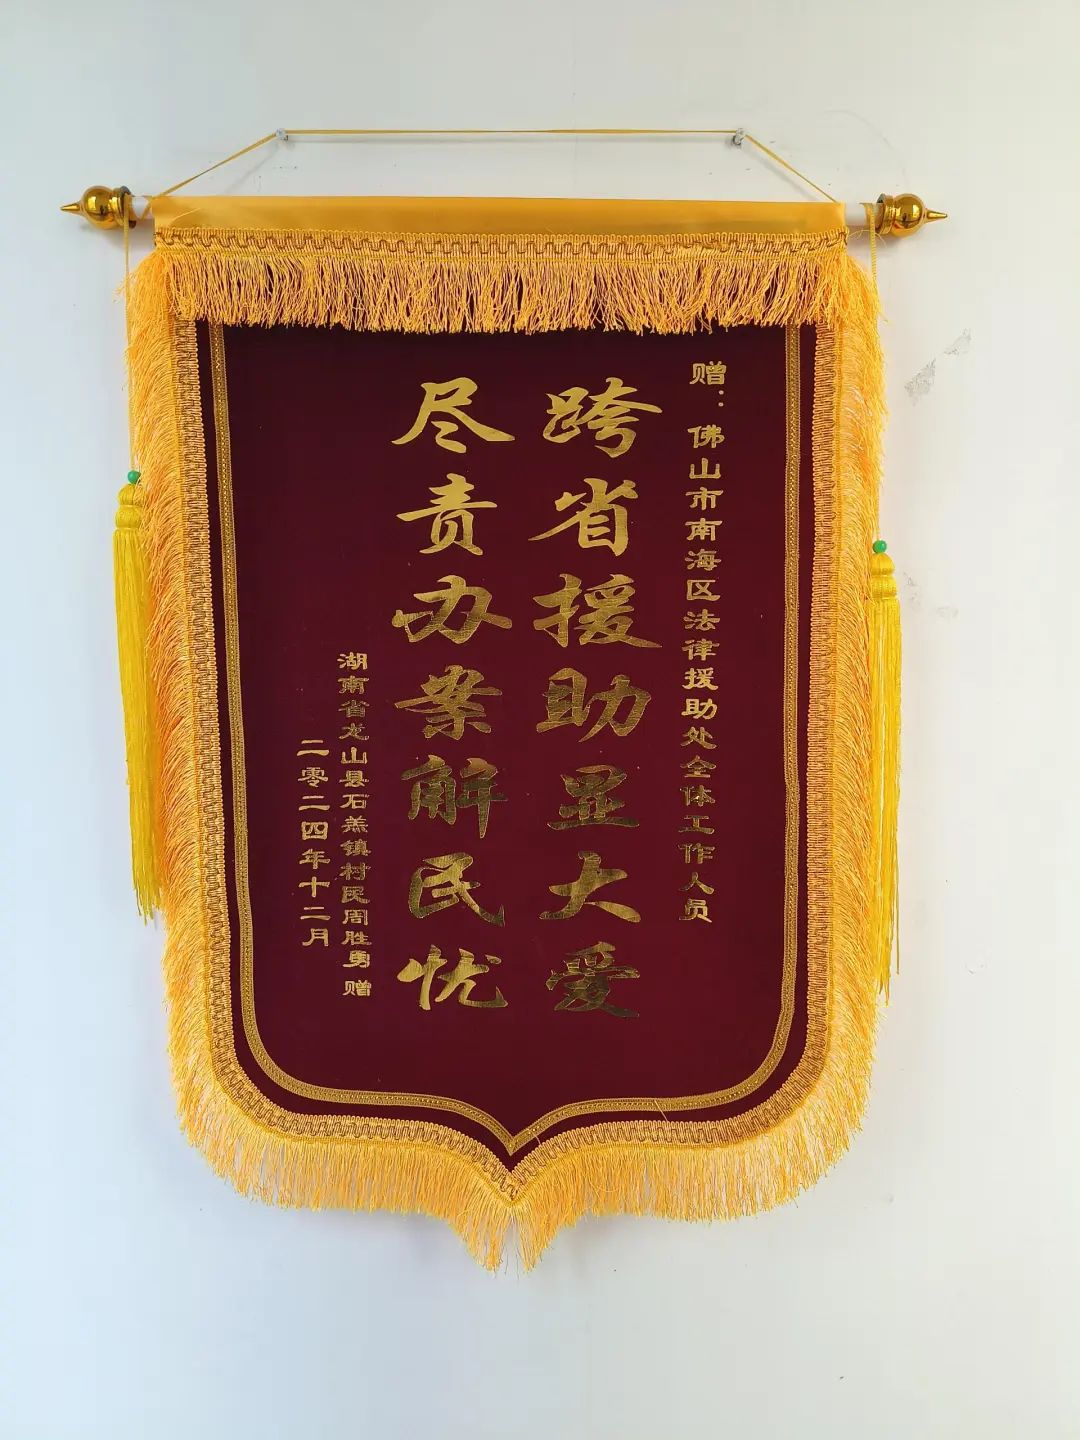 赠：佛山市南海区法律援助处全体工作人员
跨省援助显大爱
尽责办案解民忧
湖南省龙山县石羔镇村民周胜勇 赠
二零二四年十二月